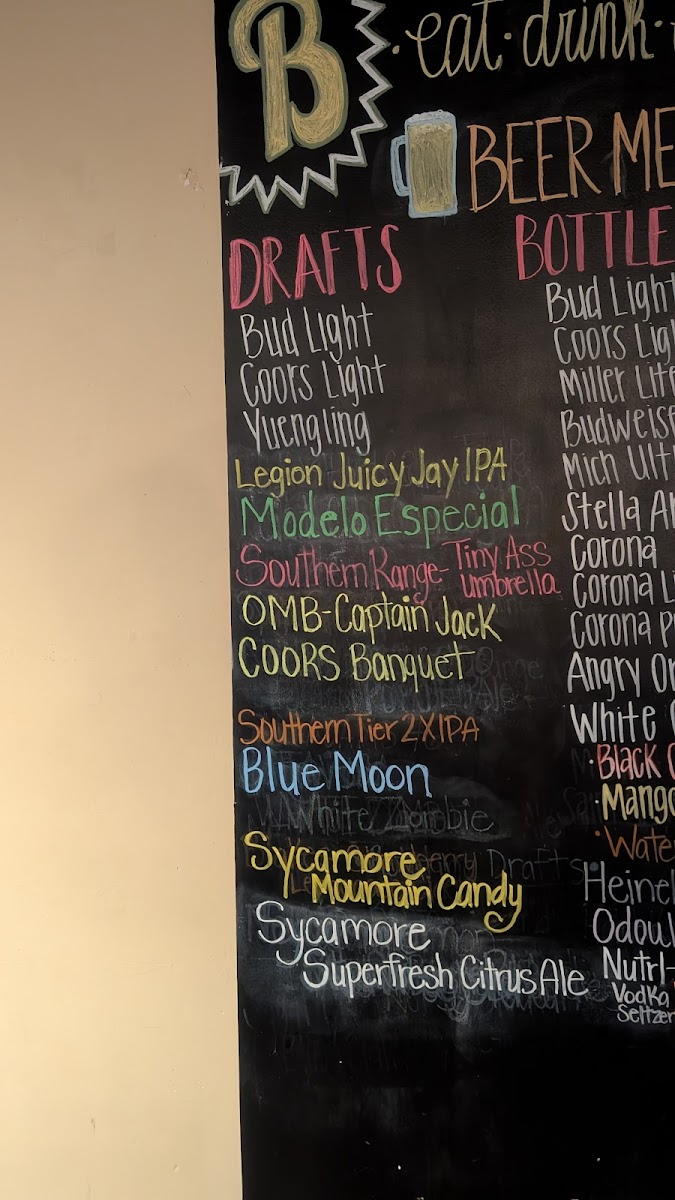 B
·eat·drink·
BEER ME
DRAFTS
Bud Light
Coors Light
Yuengling
Legion Juicy Jay IPA
Modelo Especial
Southern Range- Tiny Ass
umbrella
OMB-Captain Jack
COORS Banquet
Southern Tier 2XIPA
Blue Moon
White Zombie
Sycamore
Mountain Candy
Sycamore
Superfresh Citrus Ale
BOTTLE
Bud Light
Coors Ligh
Miller Lite
Budweise
Mich Ult
Stella Ar
Corona
Corona Li
Corona P
Angry Or
White
·Black
·Mango
·Wate
Heinek
Odoul
Nutrl-
Vodka
Seltzer